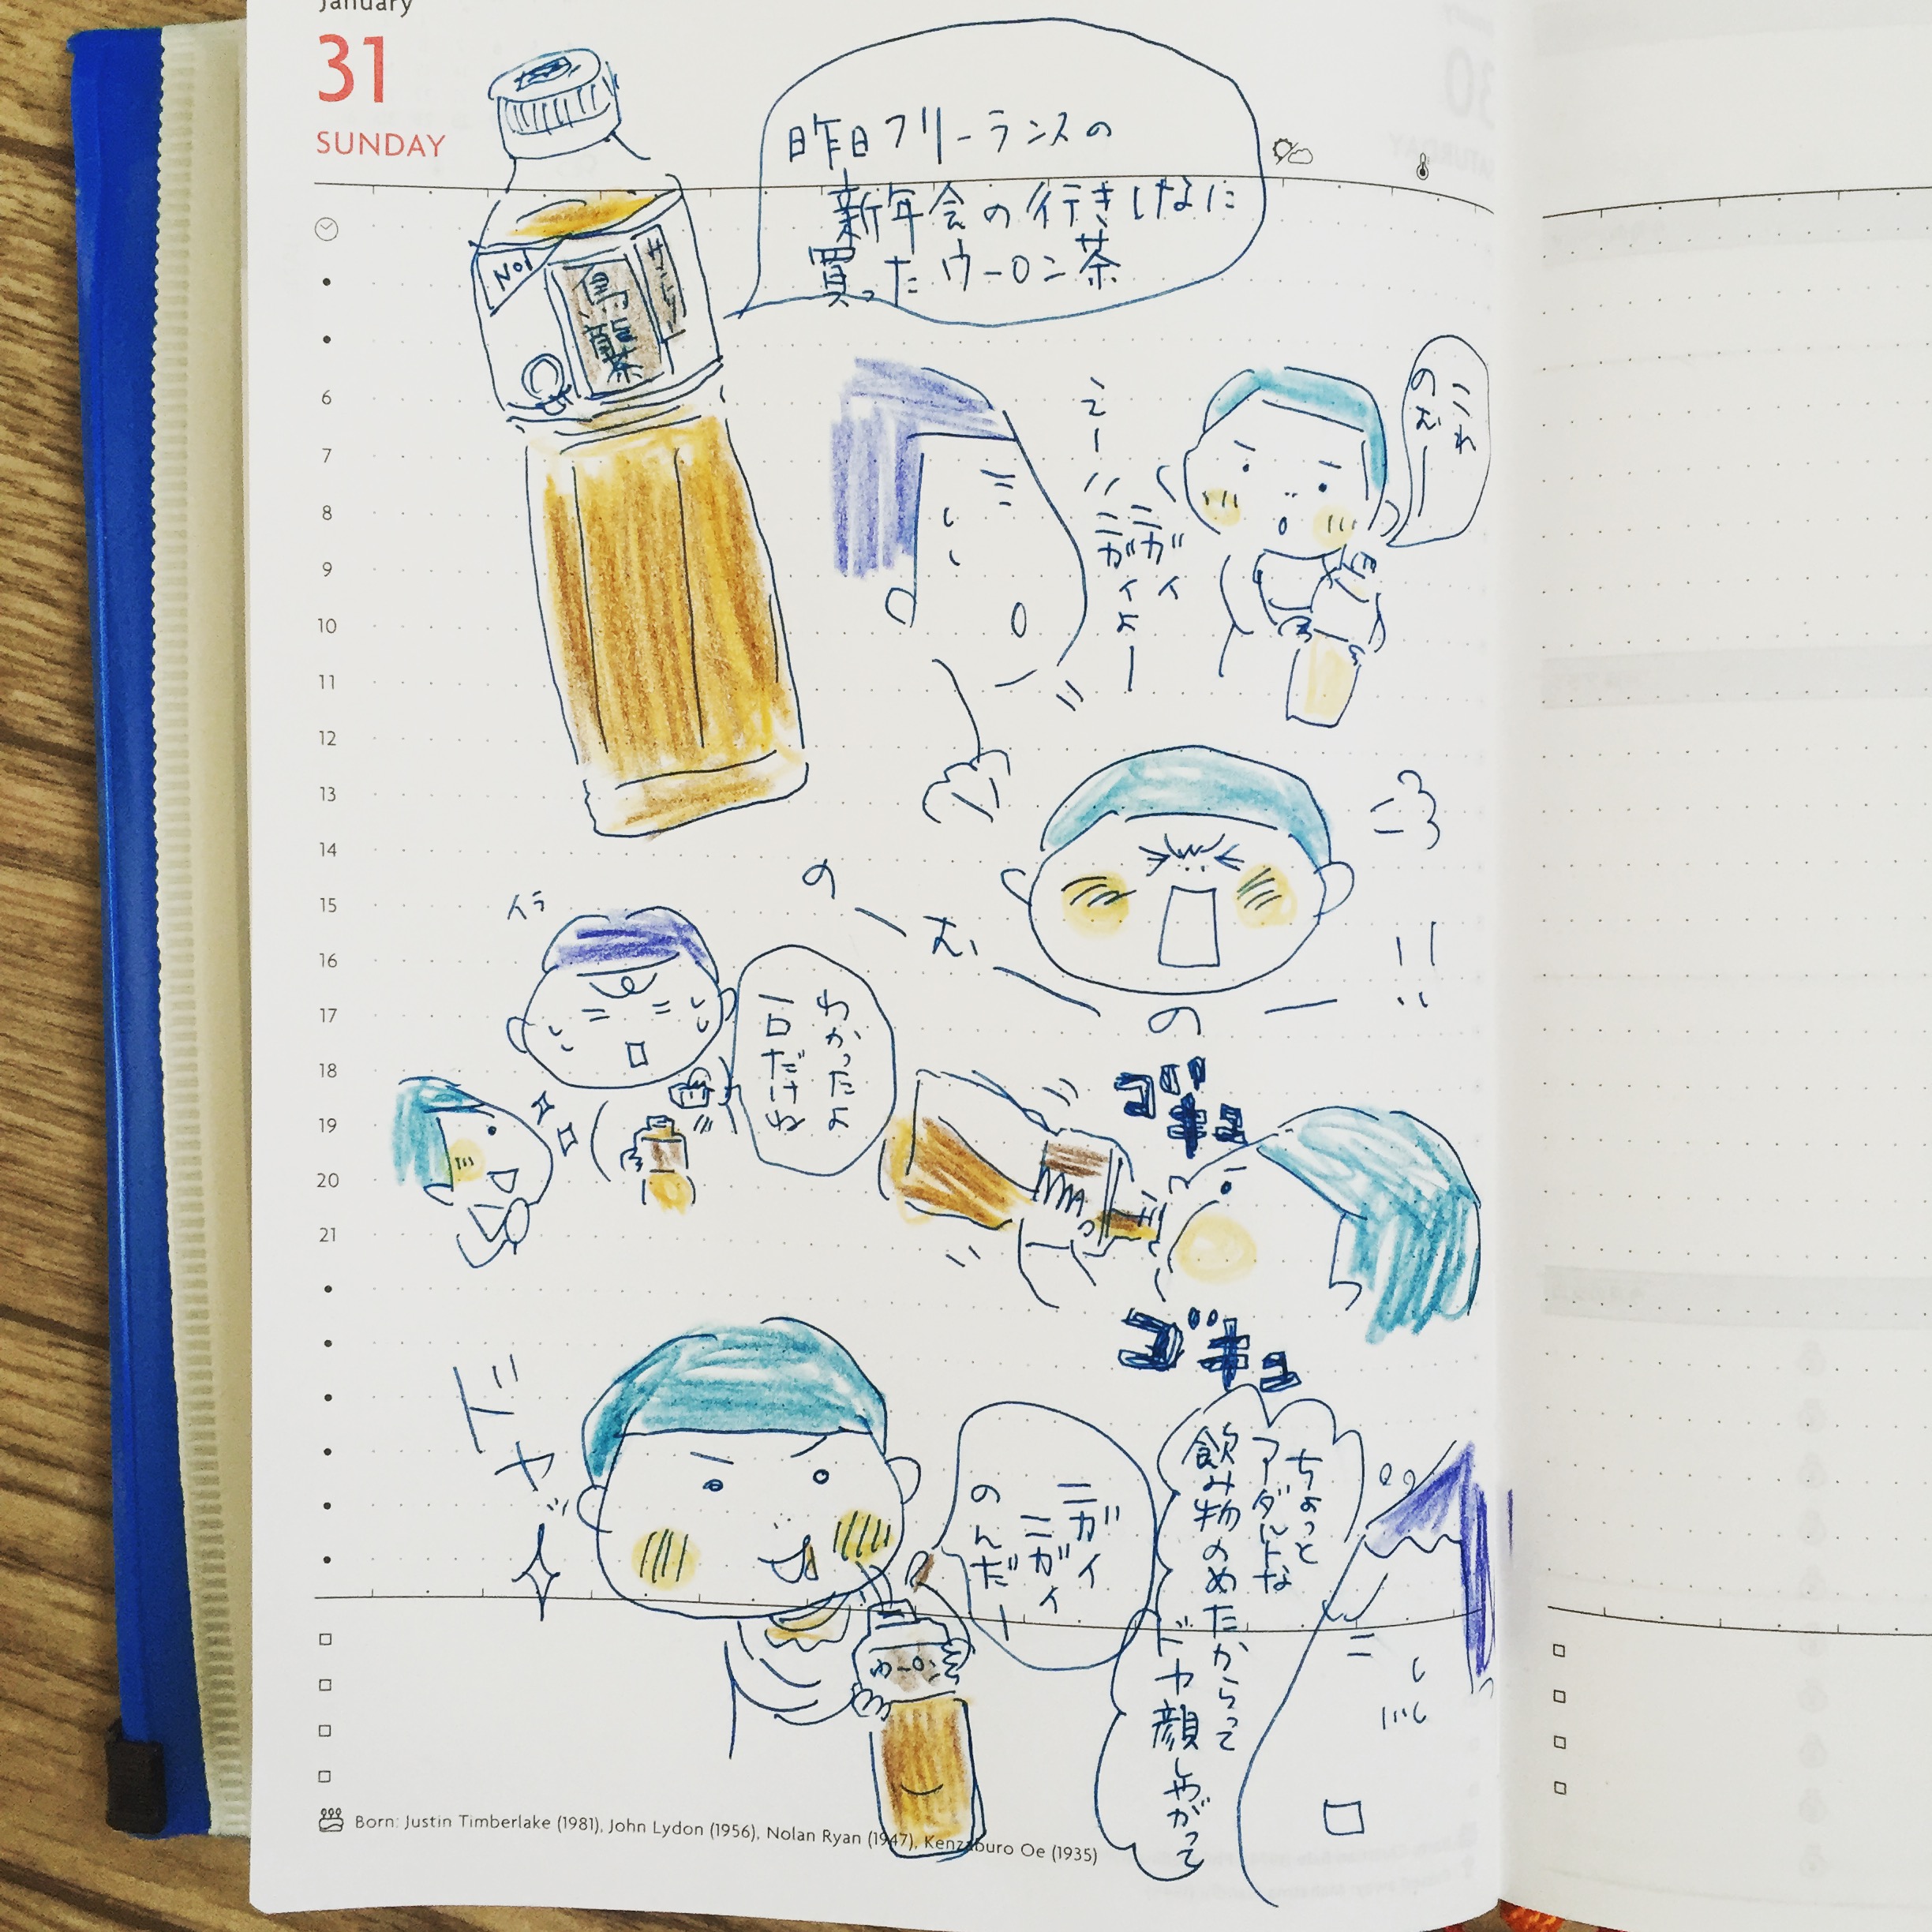 January
31
SUNDAY
昨日フリーランスの
新年会の行きしなに
買ったウーロン茶
NO1
烏龍茶
サントリー
これ
のむー
えー
ニガイ
ニガイよー
6
7
8
9
10
11
12
13
14
15
16
17
18
19
20
21
のーむーのー!!
イラ
わかったよ
一口だけね
ゴキュ
ゴキュ
ドヤッ
ニガイ
ニガイ
のんだー
ウーロン
ちょっと
アダルトな
飲み物のめたからって
ドヤ顔しやがって
Born: Justin Timberlake (1981), John Lydon (1956), Nolan Ryan (1947), Kenzaburo Oe (1935)